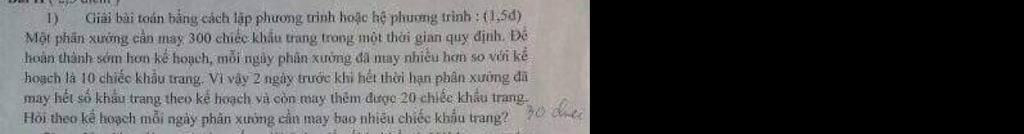 1) Giải bài toán bằng cách lập phương trình hoặc hệ phương trình : (1,5đ)
Một phân xưởng cần may 300 chiếc khẩu trang trong một thời gian quy định. Để
hoàn thành sớm hơn kế hoạch, mỗi ngày phân xưởng đã may nhiều hơn so với kế
hoạch là 10 chiếc khẩu trang. Vì vậy 2 ngày trước khi hết thời hạn phân xưởng đã
may hết số khẩu trang theo kế hoạch và còn may thêm được 20 chiếc khẩu trang.
Hỏi theo kế hoạch mỗi ngày phân xưởng cần may bao nhiêu chiếc khẩu trang? 30 chiếc